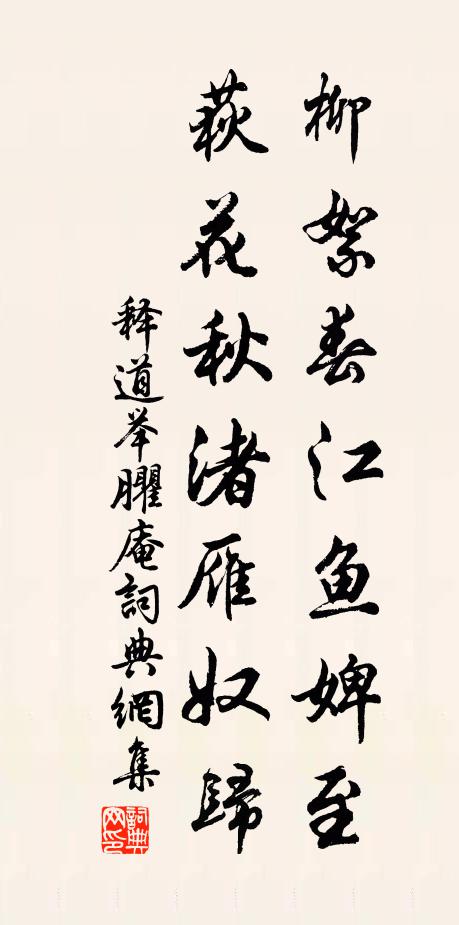 柳絮春江鱼婢至
荻花秋渚雁奴歸
释道举臞庵詞典網集
詞典网印